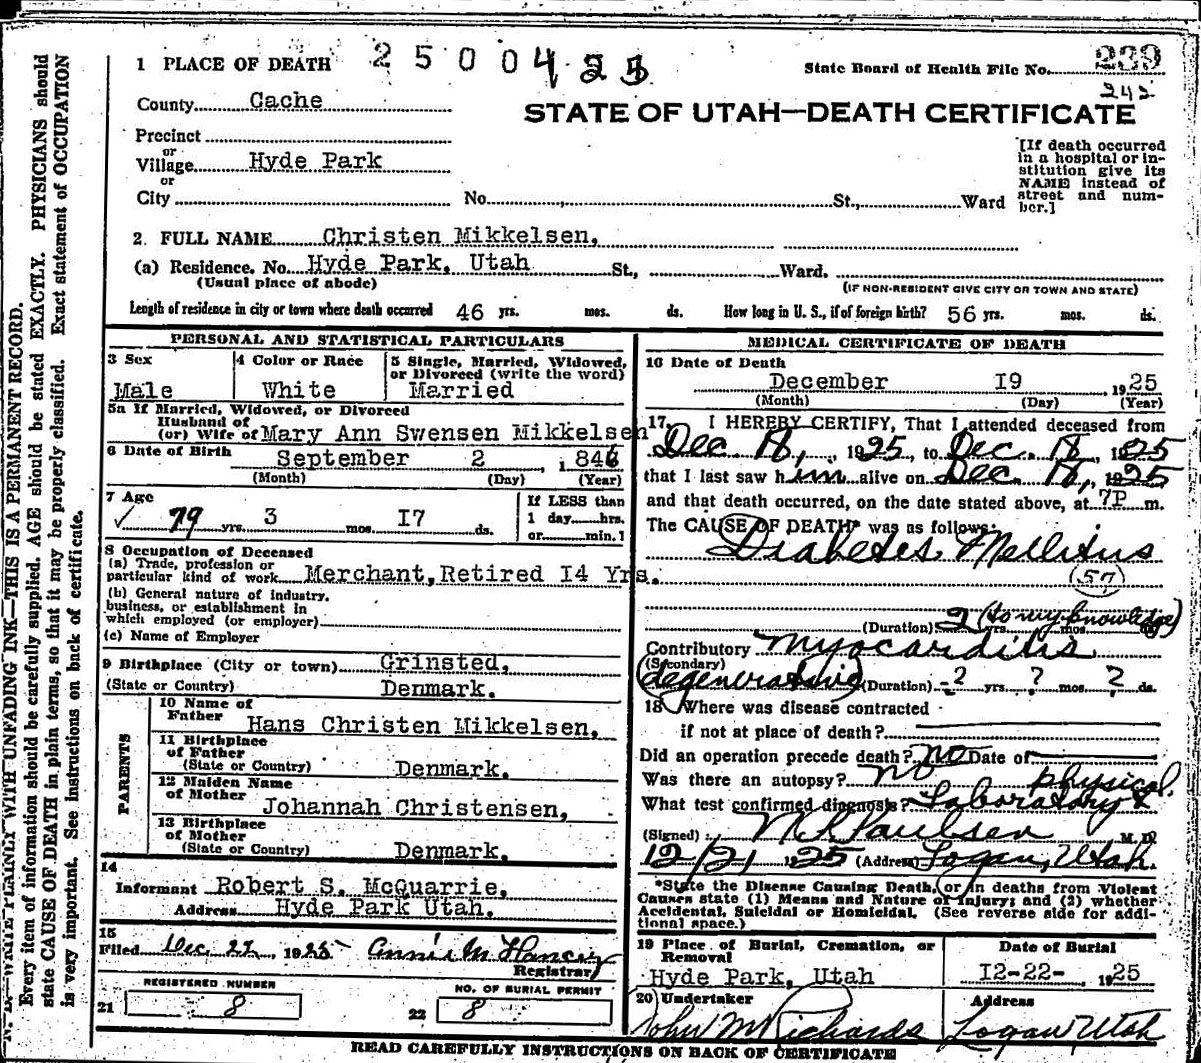 1 PLACE OF DEATH 2 5 0 0 4 2 5
State Board of Health File No. 239
242
County Cache
STATE OF UTAH—DEATH CERTIFICATE
Precinct
or
Village Hyde Park
or
City No. , St., Ward
[If death occurred
in a hospital or in-
stitution give its
NAME instead of
street and num-
ber.]
2. FULL NAME Christen Mikkelsen,
(a) Residence. No. Hyde Park, Utah St., Ward.
(Usual place of abode)
(IF NON-RESIDENT GIVE CITY OR TOWN AND STATE)
Length of residence in city or town where death occurred 46 yrs. mos. ds. How long in U. S., if of foreign birth? 56 yrs. mos. ds.
PERSONAL AND STATISTICAL PARTICULARS
3 Sex
Male
4 Color or Race
White
5 Single, Married, Widowed,
or Divorced (write the word)
Married
5a If Married, Widowed, or Divorced
Husband of
(or) Wife of Mary Ann Swensen Mikkelsen
6 Date of Birth
September 2 , 1846
(Month) (Day) (Year)
7 Age
✓ 79 yrs. 3 mos. I7 ds.
If LESS than
1 day hrs.
or min. 1
8 Occupation of Deceased
(a) Trade, profession or
particular kind of work Merchant, Retired I4 Yrs.
(b) General nature of industry.
business, or establishment in
which employed (or employer)
(c) Name of Employer
9 Birthplace (City or town) Grinsted,
(State or Country) Denmark.
PARENTS
10 Name of
Father Hans Christen Mikkelsen,
11 Birthplace
of Father
(State or Country) Denmark.
12 Maiden Name
of Mother
Johannah Christensen,
13 Birthplace
of Mother
(State or Country) Denmark.
14
Informant Robert S. McQuarrie,
Address Hyde Park Utah.
15
Filed Dec. 22, 1925 Annie M Hancey
Registrar
REGISTERED NUMBER
21 8
NO. OF BURIAL PERMIT
22 8
MEDICAL CERTIFICATE OF DEATH
16 Date of Death
December I9 , 1925
(Month) (Day) (Year)
17. I HEREBY CERTIFY, That I attended deceased from
Dec. 18, , 1925, to Dec. 18 , 1925
that I last saw him alive on Dec. 18, , 1925
and that death occurred, on the date stated above, at 7P m.
The CAUSE OF DEATH* was as follows:
Diabetes Mellitus
(57)
(Duration) 2 (to my knowledge) yrs. mos.
Contributory Myocarditis
(Secondary)
(degenerative) (Duration) -2 yrs. ? mos. ? ds.
18 Where was disease contracted
if not at place of death?
Did an operation precede death? No Date of
Was there an autopsy? No physical.
What test confirmed diagnosis? Laboratory &
(Signed) M R Paulsen M. D.
12/21 1925 (Address) Logan, Utah.
*State the Disease Causing Death, or in deaths from Violent
Causes state (1) Means and Nature of Injury; and (2) whether
Accidental, Suicidal or Homicidal. (See reverse side for addi-
tional space.)
19 Place of Burial, Cremation, or
Removal
Hyde Park, Utah
Date of Burial
I2-22- , 1925
20 Undertaker
John M Richards
Address
Logan, Utah
READ CAREFULLY INSTRUCTIONS ON BACK OF CERTIFICATE
N. B.—WRITE PLAINLY WITH UNFADING INK—THIS IS A PERMANENT RECORD.
Every item of information should be carefully supplied. AGE should be stated EXACTLY. PHYSICIANS should
state CAUSE OF DEATH in plain terms, so that it may be properly classified. Exact statement of OCCUPATION
is very important. See instructions on back of certificate.